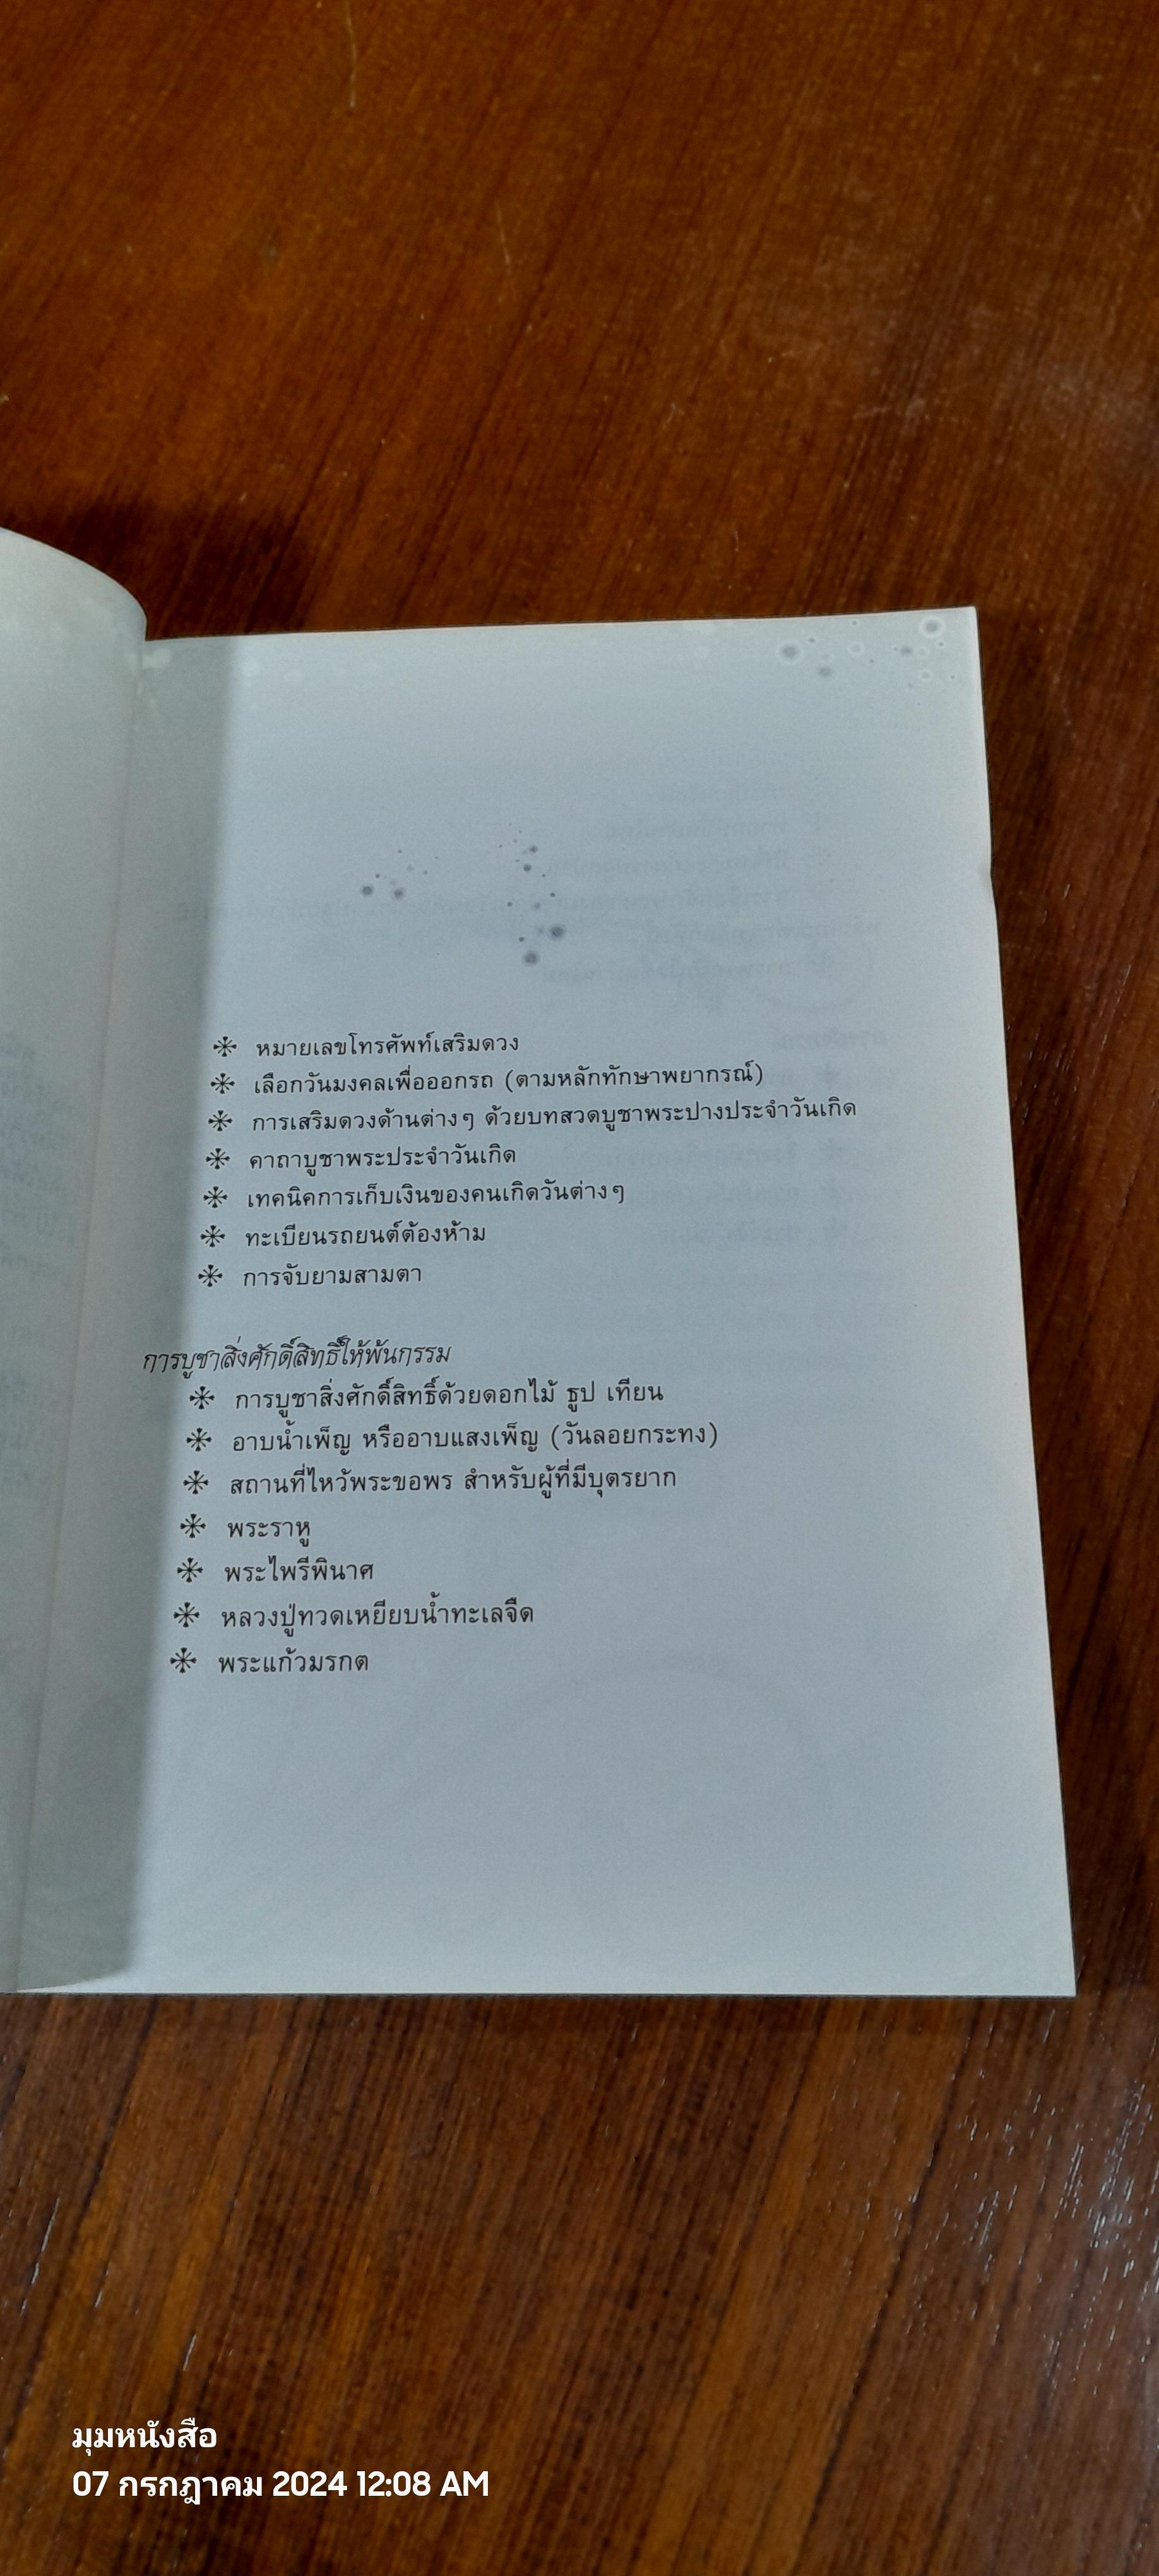 หมายเลขโทรศัพท์เสริมดวง
เลือกวันมงคลเพื่อออกรถ (ตามหลักทักษาพยากรณ์)
การเสริมดวงด้านต่างๆ ด้วยบทสวดบูชาพระปางประจำวันเกิด
คาถาบูชาพระประจำวันเกิด
เทคนิคการเก็บเงินของคนเกิดวันต่างๆ
ทะเบียนรถยนต์ต้องห้าม
การจับยามสามตา
การบูชาสิ่งศักดิ์สิทธิ์ให้พ้นกรรม
การบูชาสิ่งศักดิ์สิทธิ์ด้วยดอกไม้ ธูป เทียน
อาบน้ำเพ็ญ หรืออาบแสงเพ็ญ (วันลอยกระทง)
สถานที่ไหว้พระขอพร สำหรับผู้ที่มีบุตรยาก
พระราหู
พระไพรีพินาศ
หลวงปู่ทวดเหยียบน้ำทะเลจืด
พระแก้วมรกต
มุมหนังสือ
07 กรกฎาคม 2024 12:08 AM